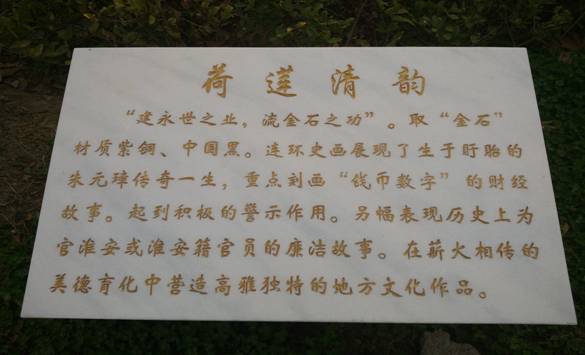 荷莲清韵
“建永世之业，流金石之功”。取“金石”
材质紫铜、中国黑。连环史画展现了生于盱眙的
朱元璋传奇一生，重点刻画“钱币数字”的财经
故事。起到积极的警示作用。另幅表现历史上为
官淮安或淮安籍官员的廉洁故事。在薪火相传的
美德育化中营造高雅独特的地方文化作品。